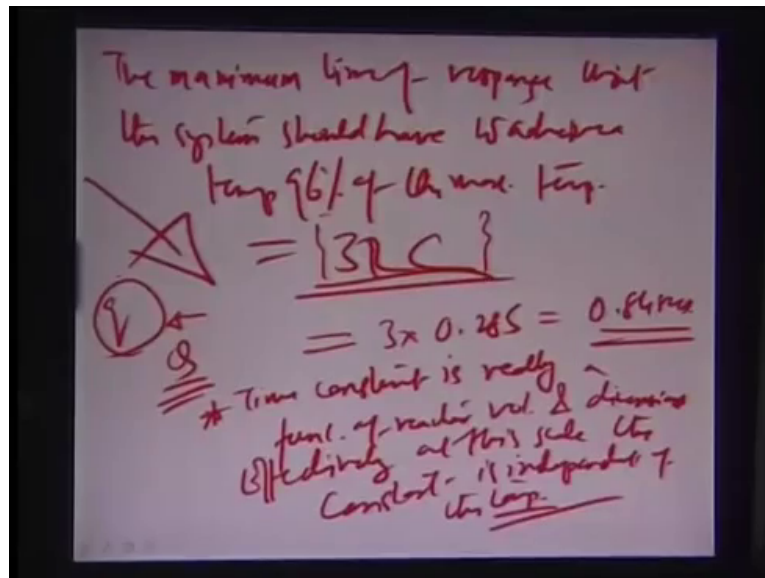 The maximum time of response that
the system should have to achieve a
temp 96% of the max. temp.
= {3RC}
= 3x 0.285 = 0.84 sec
q
Q
* Time constant is really a
func. of reactor vol. & dimensions
Effectively at this scale the
Constant is independent of
the temp.